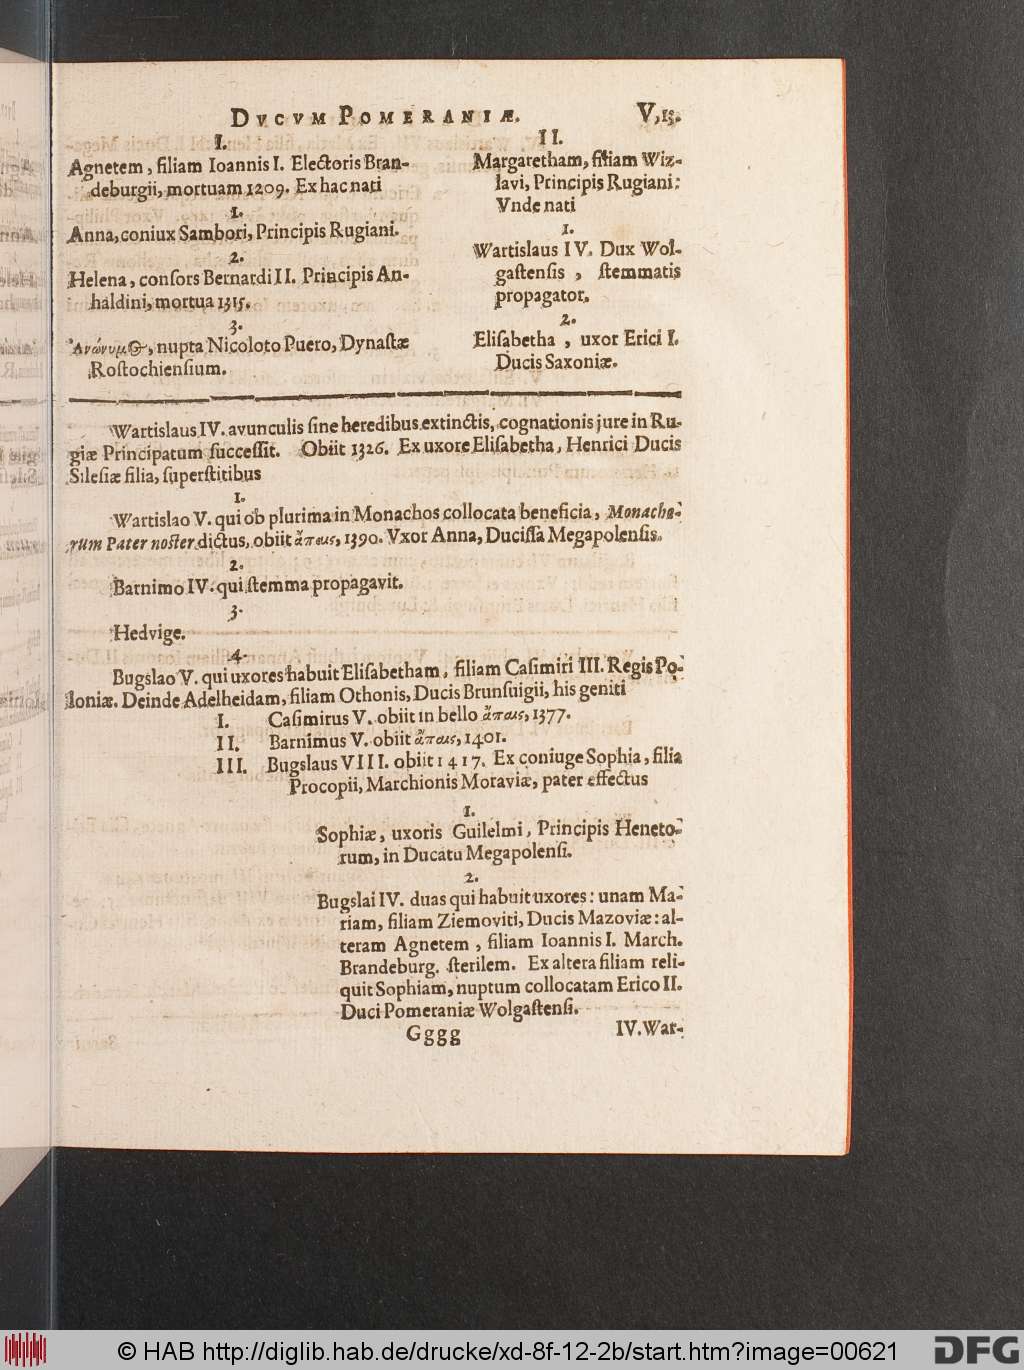 DVCVM POMERANIÆ. V,15.
I.
Agnetem, filiam Ioannis I. Electoris Bran-
deburgii, mortuam 1209. Ex hac nati
1.
Anna, coniux Sambori, Principis Rugiani.
2.
Helena, conſors Bernardi II. Principis An-
haldini, mortua 1315.
3.
Ἀνώνυμος, nupta Nicoloto Puero, Dynaſtæ
Roſtochienſium.
II.
Margaretham, filiam Wiz-
lavi, Principis Rugiani:
Vnde nati
1.
Wartislaus IV. Dux Wol-
gaſtenſis, ſtemmatis
propagator.
2.
Eliſabetha, uxor Erici I.
Ducis Saxoniæ.
Wartislaus IV. avunculis ſine heredibus extinctis, cognationis jure in Ru-
giæ Principatum ſucceſſit. Obiit 1326. Ex uxore Eliſabetha, Henrici Ducis
Sileſiæ filia, ſuperſtitibus
1.
Wartislao V. qui ob plurima in Monachos collocata beneficia, Monacho-
rum Pater noſter dictus, obiit ἄπαις, 1390. Vxor Anna, Duciſſa Megapolenſis.
2.
Barnimo IV. qui ſtemma propagavit.
3.
Hedvige.
4.
Bugslao V. qui uxores habuit Eliſabetham, filiam Caſimiri III. Regis Po-
loniæ. Deinde Adelheidam, filiam Othonis, Ducis Brunſuigii, his geniti
I. Caſimirus V. obiit in bello ἄπαις, 1377.
II. Barnimus V. obiit ἄπαις, 1401.
III. Bugslaus VIII. obiit 1417. Ex coniuge Sophia, filia
Procopii, Marchionis Moraviæ, pater effectus
1.
Sophiæ, uxoris Guilelmi, Principis Heneto-
rum, in Ducatu Megapolenſi.
2.
Bugslai IV. duas qui habuit uxores: unam Ma-
riam, filiam Ziemoviti, Ducis Mazoviæ: al-
teram Agnetem, filiam Ioannis I. March.
Brandeburg. ſterilem. Ex altera filiam reli-
quit Sophiam, nuptum collocatam Erico II.
Duci Pomeraniæ Wolgaſtenſi.
Gggg IV. War-
© HAB http://diglib.hab.de/drucke/xd-8f-12-2b/start.htm?image=00621
DFG